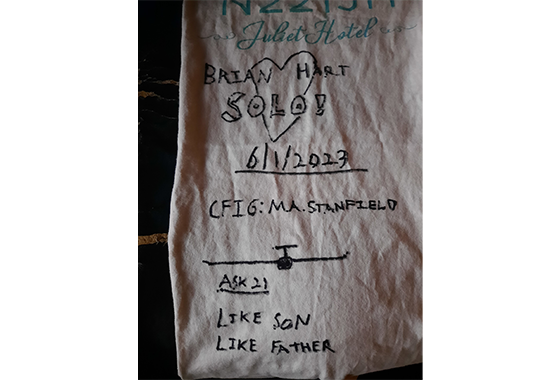 Juliet Hotel
BRIAN HART
SOLO!
6/1/2023
CFIG: M.A. STANFIELD
ASK 21
LIKE SON
LIKE FATHER